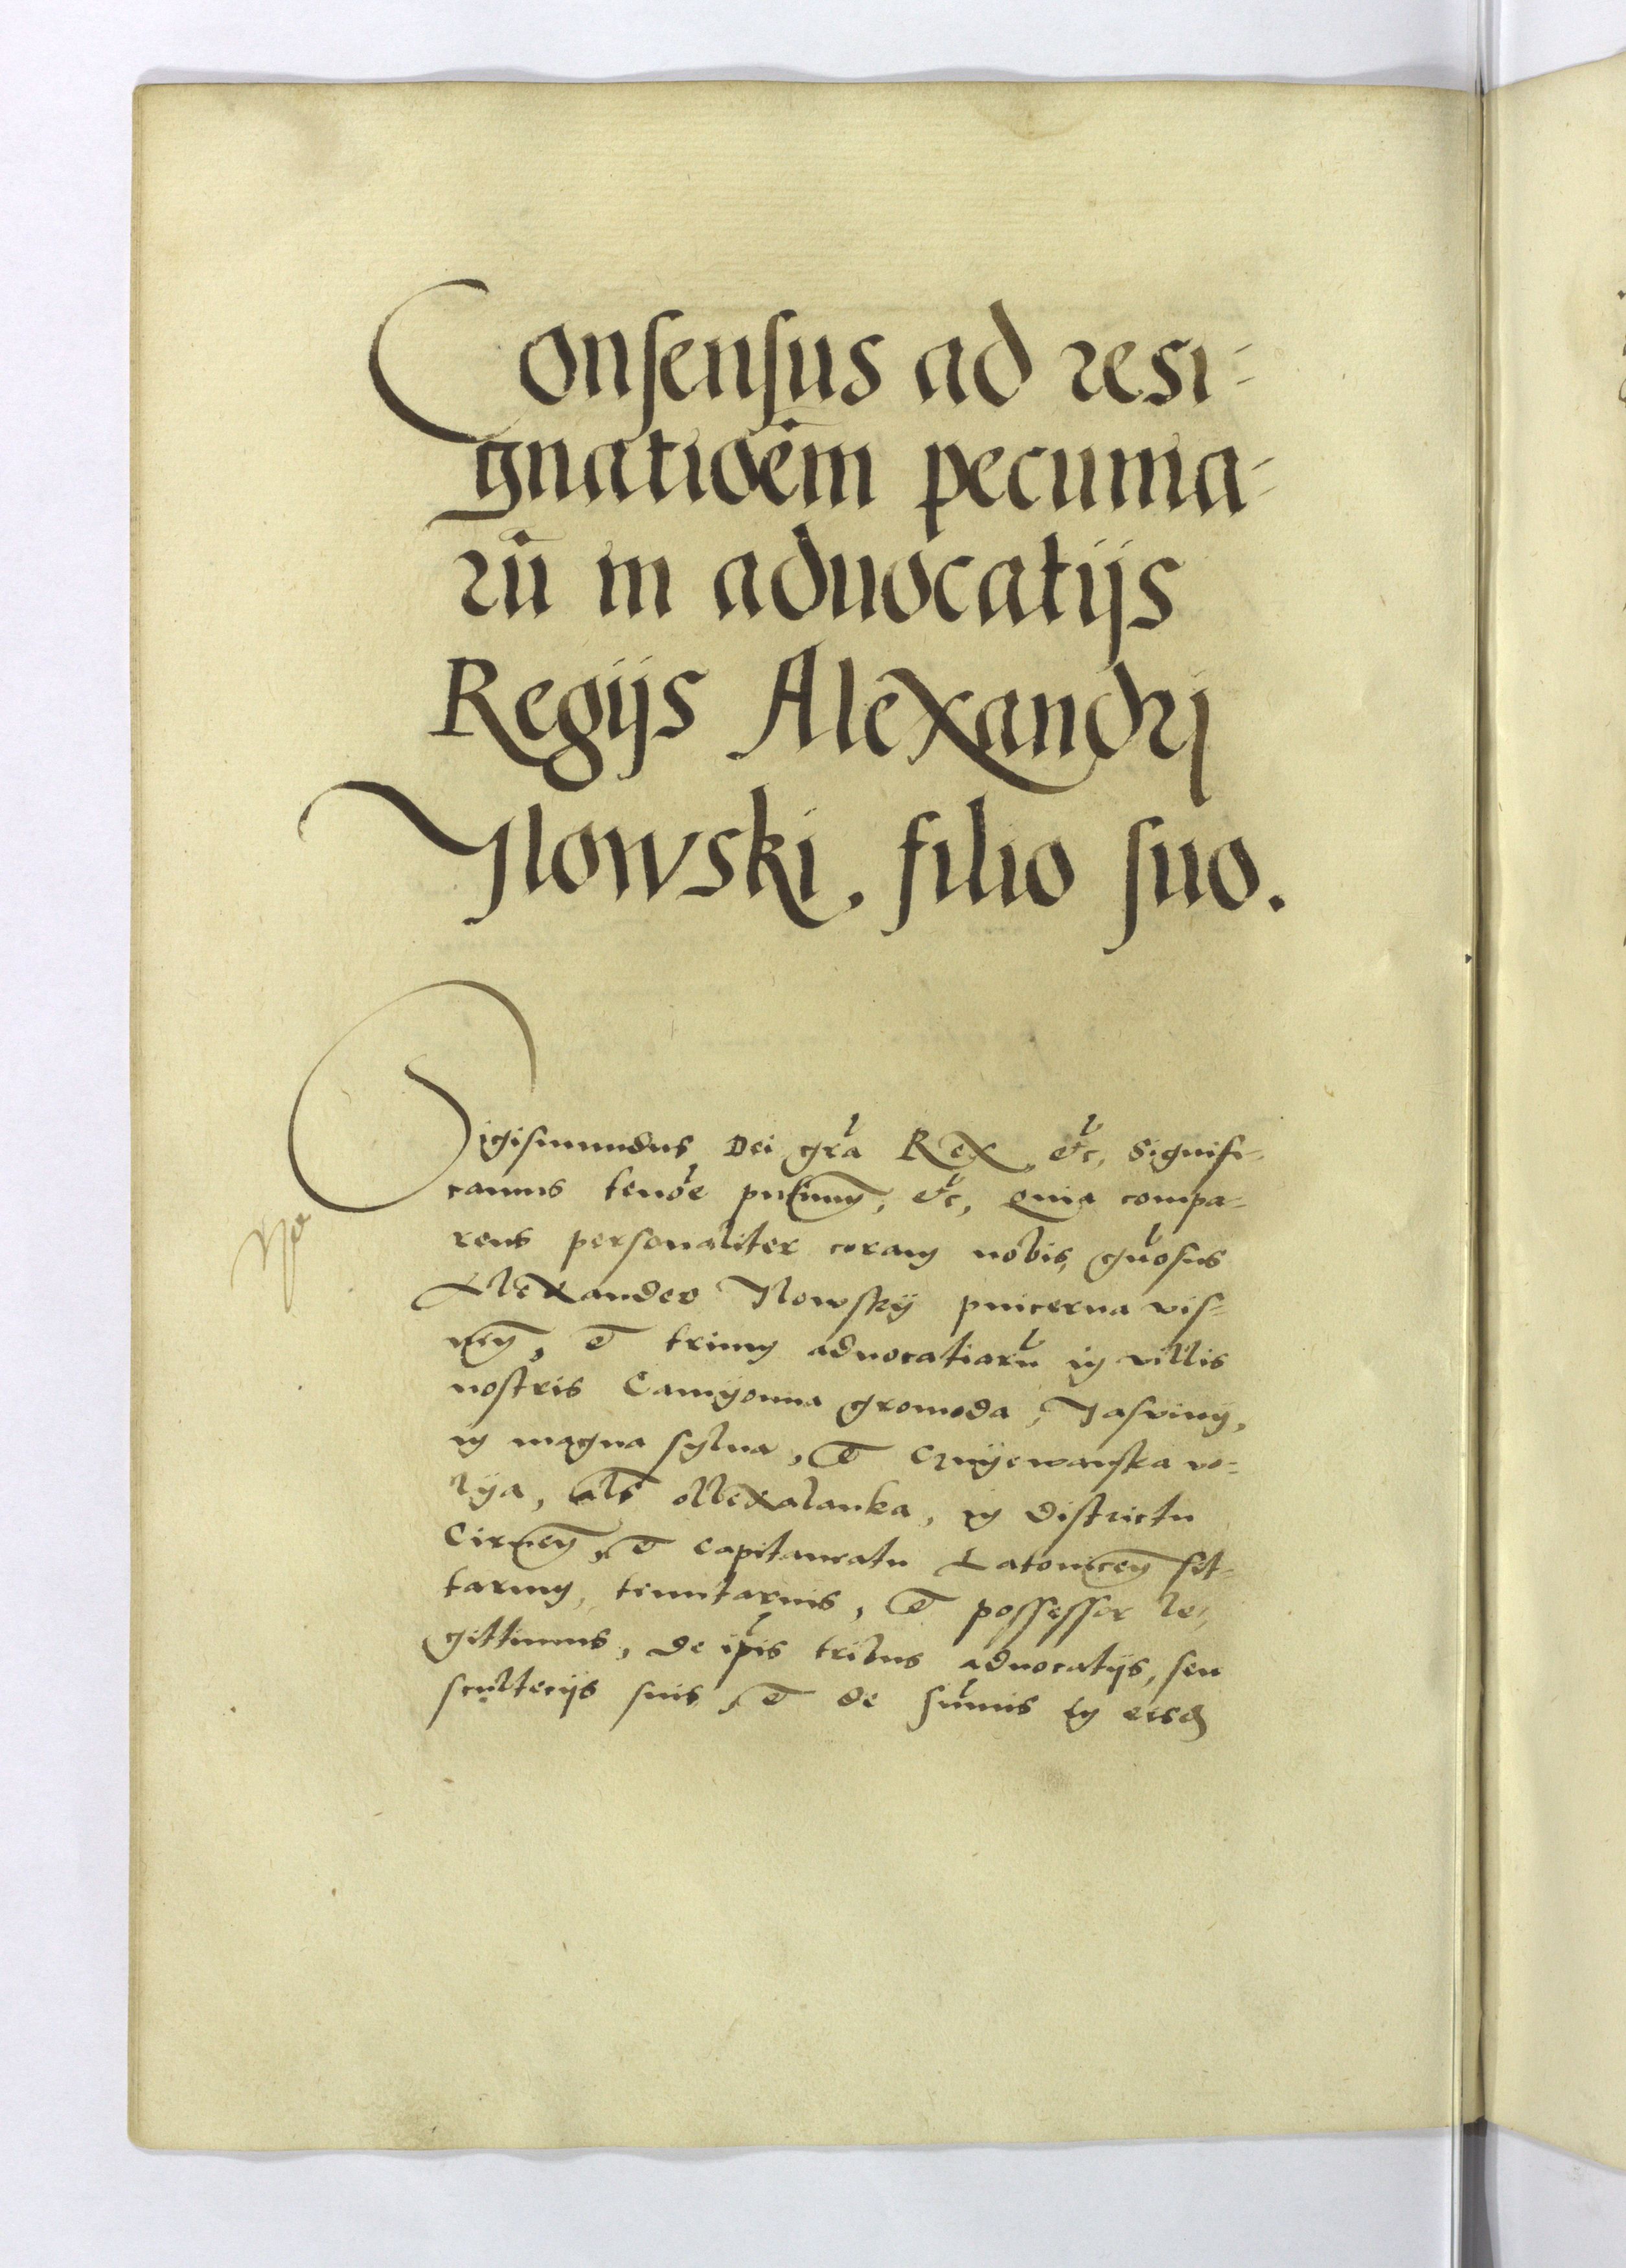 Consensus ad resi-
gnatioem pecunia-
rũ in aduocatijs
Regijs Alexandrj
Ilowski. filio suo.
Sigismundus Dei gra Rex, etc, Signifi-
camus tenore pntium, etc, Quia compa-
rens personaliter coram nobis, gnosus
Alexander Ilowskÿ pincerna vis-
nen, et trium aduocatiarũ in villis
nostris Camÿonna gromoda, Jasviny,
in magna sylua, et Czuÿewanska vo-
lÿa, als ollexalanka, in districtu
Cirnen, et capitaneatu Latonicen sit-
tarum, tenutarius, et possessor le-
gittimus, de ipis tribus aduocatijs, seu
scultecijs suis, et de sũmis in eisd